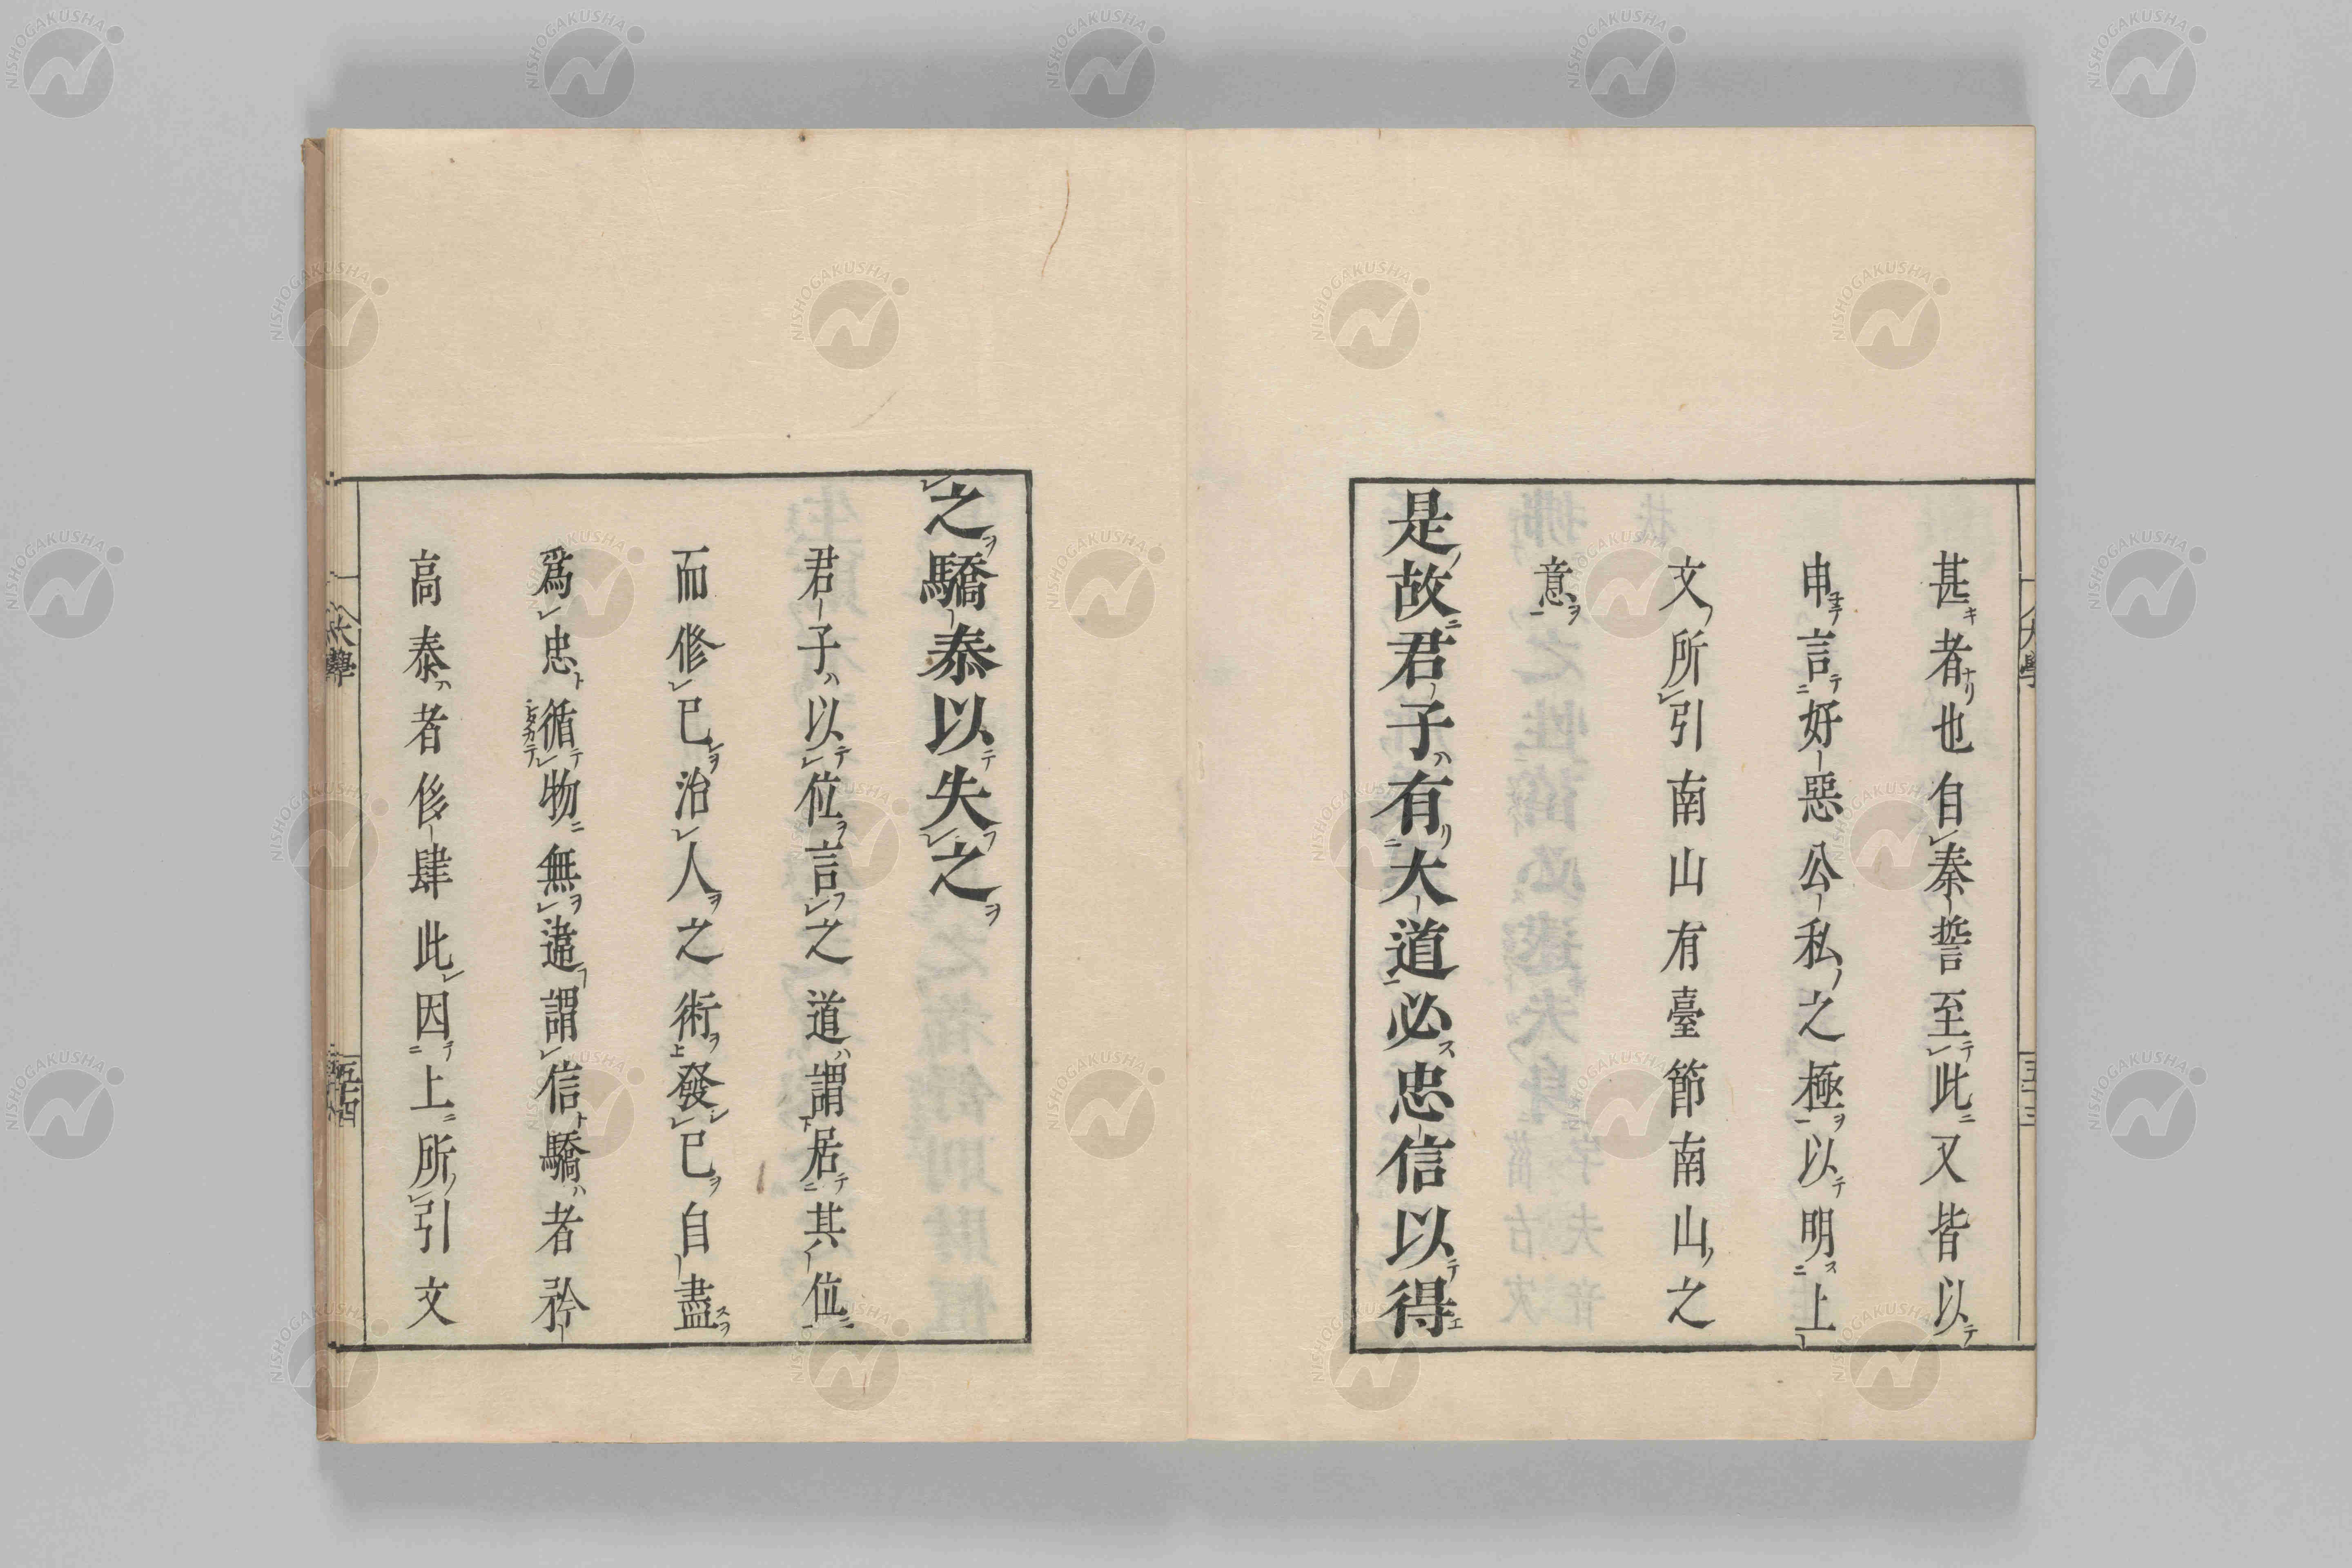 甚者也自秦誓至此又皆以
申言好惡公私之極以明上
文所引南山有臺節南山之
意
是故君子有大道必忠信以得
之驕泰以失之
君子以位言之道謂居其位
而修己治人之術發己自盡
爲忠循物無違謂信驕者矜
高泰者侈肆此因上所引文
大學
五十四
NISHOGAKUSHA